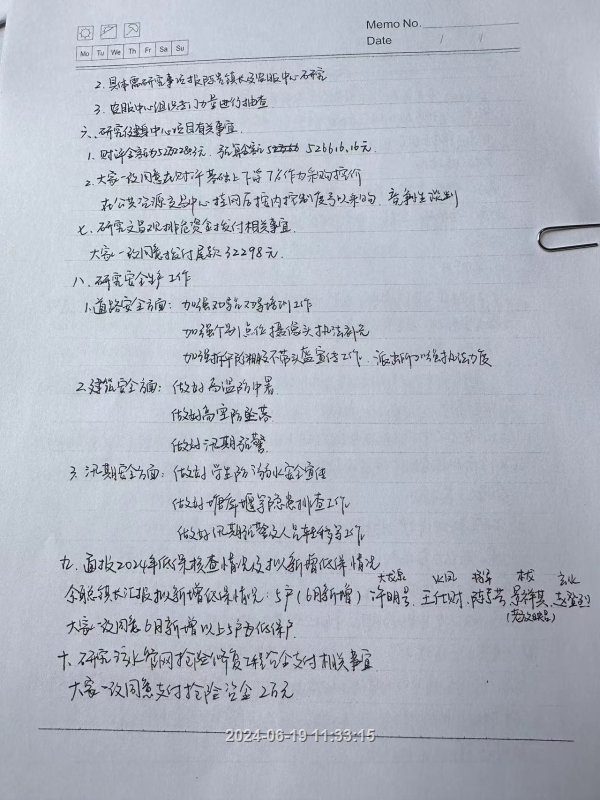 Memo No.
Mo Tu We Th Fr Sa Su
Date / /
2. 具体需研究事项报陈发镇长及宏服中心研究
3. 宏服中心组织专门力量进行抽查
六、研究健身中心项目有关事宜
1. 财评金额为527228元,预算金额 526616.16元
2. 大家一致同意在财评基础上下浮 作为采购控价
在公共资源交易中心挂网后按内控制度予以采购,竞争性谈判
七、研究文昌观排危资金拨付相关事宜
大家一致同意拨付尾款32298元
八、研究安全生产工作
1. 道路安全方面:加强劝导员劝导培训工作
加强个别点位摄像头执法补充
加强 不带头盔宣传工作、派出所加强执法力度
2. 建筑安全方面:做好高温防中暑
做好高空防坠落
做好汛期预警
3. 汛期安全方面:做好学生防溺水安全宣传
做好塘库堰等隐患排查工作
做好汛期预警及人员转移等工作
九、通报2024年低保核查情况及拟新增低保情况
镇长汇报拟新增低保情况:5户(6月新增)许明号、王仕财、陈 芳、
大家一致同意6月新增以上5户为低保户
十、研究污水管网抢险修复工程资金支付相关事宜
大家一致同意支付抢险资金2万元
2024-06-19 11:33:15